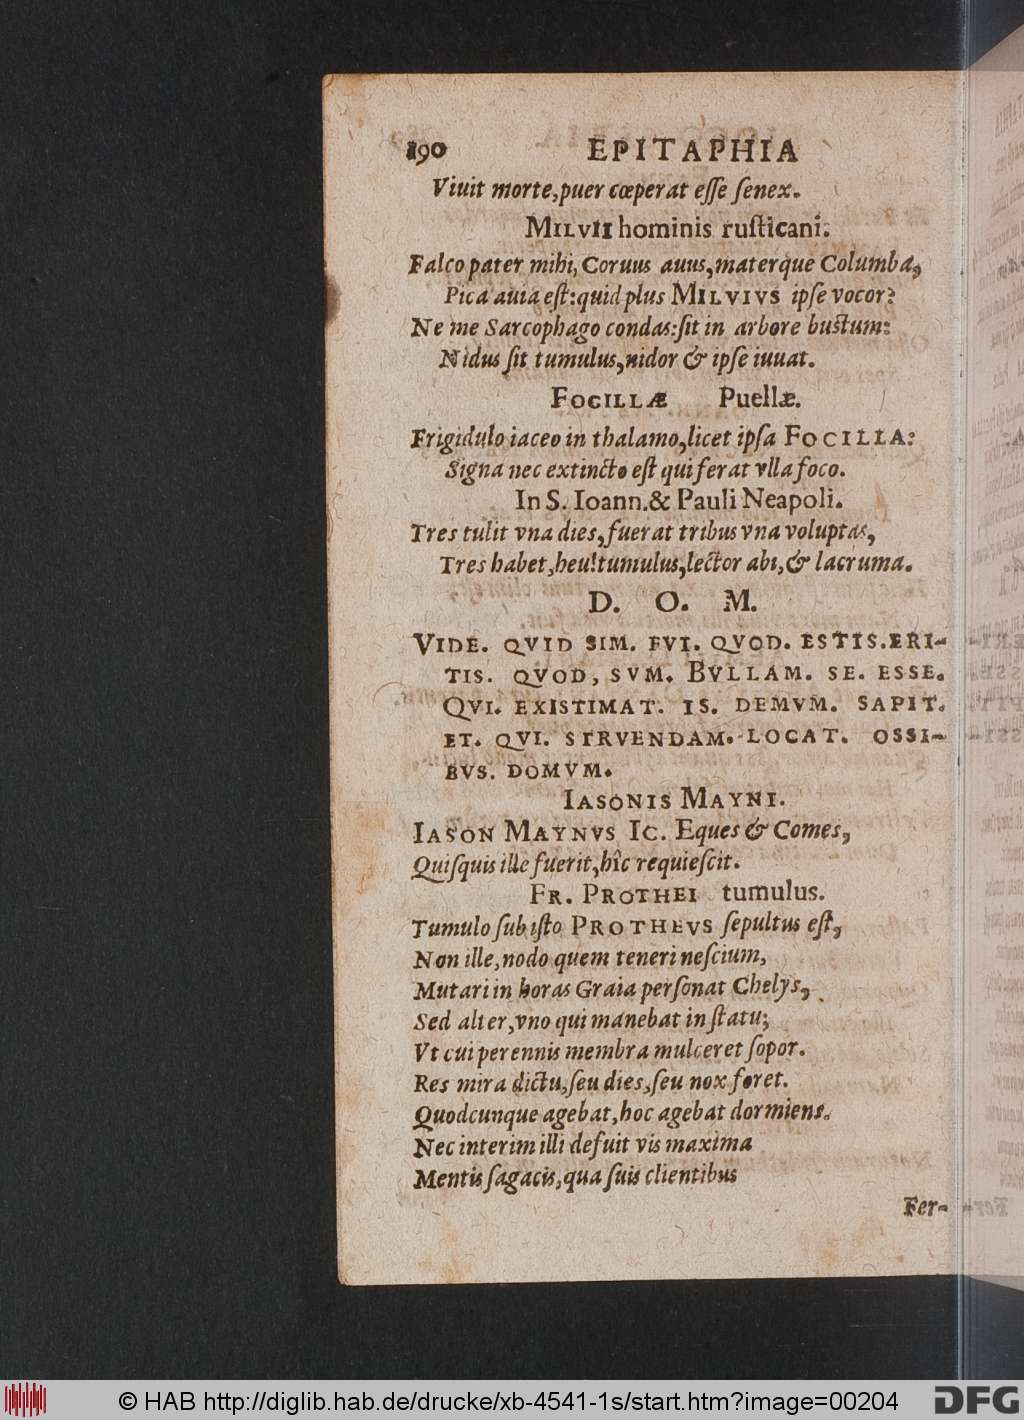 190 EPITAPHIA
Viuit morte, puer cœperat eſſe ſenex.
MILVII hominis ruſticani.
Falco pater mihi, Coruus auus, materque Columba,
Pica auia eſt: quid plus MILVIVS ipſe vocor?
Ne me Sarcophago condas: ſit in arbore buſtum:
Nidus ſit tumulus, nidor & ipſe iuuat.
FOCILLÆ Puellæ.
Frigidulo iaceo in thalamo, licet ipſa FOCILLA:
Signa nec extincto eſt qui ferat vlla foco.
In S. Ioann. & Pauli Neapoli.
Tres tulit vna dies, fuerat tribus vna voluptas,
Tres habet, heu! tumulus, lector abi, & lacruma.
D. O. M.
VIDE. QVID SIM. FVI. QVOD. ESTIS. ERI-
TIS. QVOD, SVM. BVLLAM. SE. ESSE.
QVI. EXISTIMAT. IS. DEMVM. SAPIT.
ET. QVI. STRVENDAM. LOCAT. OSSI-
BVS. DOMVM.
IASONIS MAYNI.
IASON MAYNVS IC. Eques & Comes,
Quiſquis ille fuerit, hîc requieſcit.
FR. PROTHEI tumulus.
Tumulo ſub iſto PROTHEVS ſepultus eſt,
Non ille, nodo quem teneri neſcium,
Mutari in horas Graia perſonat Chelys,
Sed alter, vno qui manebat in ſtatu;
Vt cui perennis membra mulceret ſopor.
Res mira dictu, ſeu dies, ſeu nox foret.
Quodcunque agebat, hoc agebat dormiens.
Nec interim illi defuit vis maxima
Mentis ſagacis, qua ſuis clientibus
Fer-
© HAB http://diglib.hab.de/drucke/xb-4541-1s/start.htm?image=00204
DFG